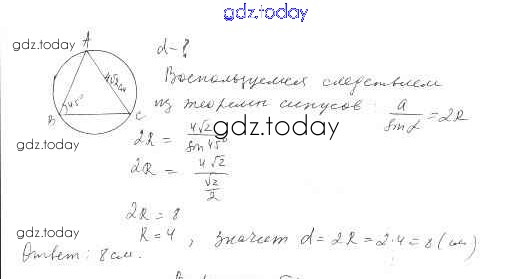 gdz.today
gdz.today
A
4√2 см
45°
B
C
d - ?
Воспользуемся следствием
из теоремы синусов: a/sin α = 2R
gdz.today
2R = 4√2/sin 45°
gdz.today
2R = 4√2/(√2/2)
2R = 8
gdz.today
R = 4, значит d = 2R = 2·4 = 8 (см)
Ответ: 8 см.